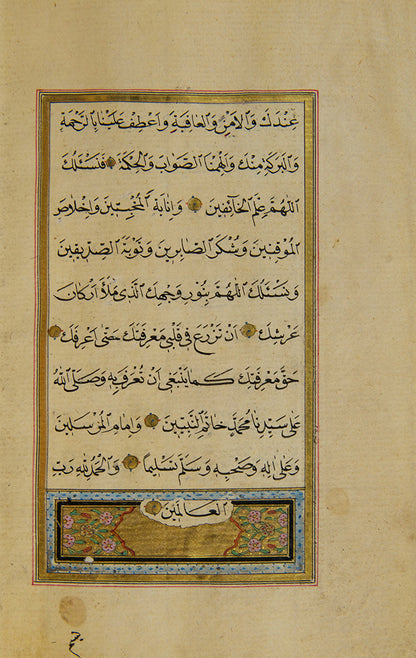 عِنْدَكَ وَالْاَمْنِ وَالْعَافِيَةِ وَاعْطِفْ عَلَيْنَا بِالرَّحْمَةِ
وَالْبَرَكَةِ مِنْكَ وَاَلْهِمْنَا الصَّوَابَ وَالْحِكْمَةَ فَنَسْئَلُكَ
اللّٰهُمَّ عِلْمَ الْخَائِفِينَ وَاِنَابَةَ الْمُخْبِتِينَ وَاِخْلَاصَ
الْمُوقِنِينَ وَشُكْرَ الصَّابِرِينَ وَتَوْبَةَ الصِّدِّيقِينَ
وَنَسْئَلُكَ اللّٰهُمَّ بِنُورِ وَجْهِكَ الَّذِي مَلَأَ اَرْكَانَ
عَرْشِكَ اَنْ تَزْرَعَ فِي قَلْبِي مَعْرِفَتَكَ حَتّٰى اَعْرِفَكَ
حَقَّ مَعْرِفَتِكَ كَمَا يَنْبَغِي اَنْ تُعْرَفَ بِهِ وَصَلَّى اللّٰهُ
عَلٰى سَيِّدِنَا مُحَمَّدٍ خَاتَمِ النَّبِيِّينَ وَاِمَامِ الْمُرْسَلِينَ
وَعَلٰى اٰلِهِ وَصَحْبِهِ وَسَلَّمَ تَسْلِيمًا وَالْحَمْدُ لِلّٰهِ رَبِّ
الْعَالَمِينَ